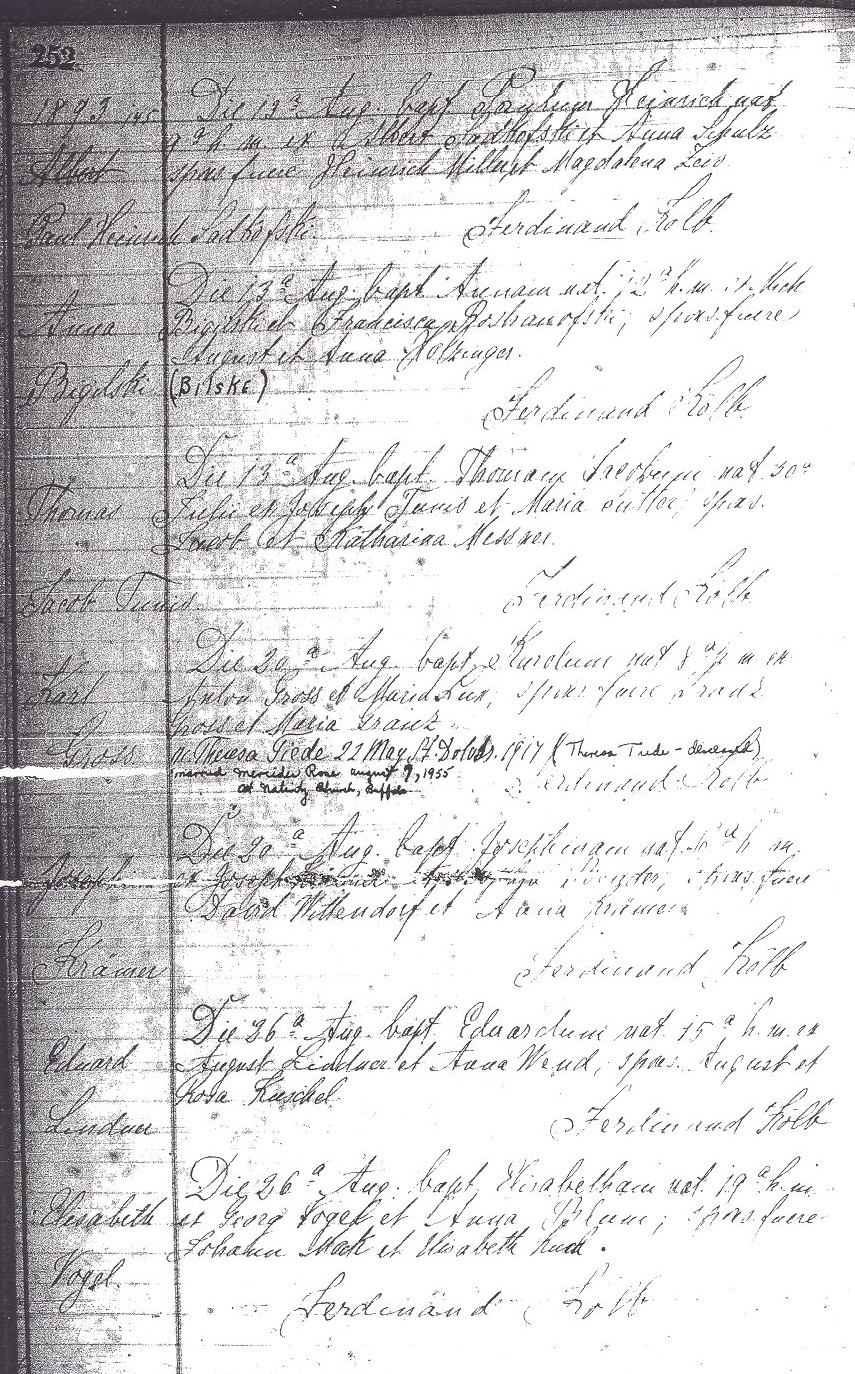 252
1893
Die 13ª Aug. bapt Heinrich nat
9ª h. m. ex Albert Sadkofski et Anna Schulz
Albert
spons fuere Heinrich et Magdalena
Paul Heinrich Sadkofski.
Ferdinand Kolb.
Die 13ª Aug. bapt Annam nat. 12ª h. m. ex Mich
Anna
Bigilski et Francisca, spons fuere
August et Anna Holzinger.
Bigilski (Bilske)
Ferdinand Kolb
Die 13ª Aug. bapt. Thomam Jacobum nat. 30ª
Thomas
Julii ex Joseph Tunis et Maria, spons.
Jacob et Katharina Messner.
Jacob Tunis.
Ferdinand Kolb
Die 20ª Aug. bapt. Karolum nat 8ª h m ex
Karl
Anton Gross et Maria Lux, spons fuere Franz
Gross et Maria Granz
Gross
Theresa Tiede 22 May 1917 (Theresa Tiede - deceased)
married Mercedes Rose august 9, 1955
at Nativity Church, Buffalo
Ferdinand Kolb
Die 20ª Aug. bapt Josephinam nat. ª h m.
Joseph
ex Joseph, spons fuere
David Wittendorf et Anna Krämer
Krämer
Ferdinand Kolb
Die 26ª Aug. bapt. Eduardum nat. 15ª h. m. ex
Eduard
August Lindner et Anna Wend, spons. August et
Rosa Kuschel
Lindner
Ferdinand Kolb
Die 26ª Aug. bapt. Elisabetham nat. 19ª h. m.
Elisabeth
ex Georg Vogel et Anna Blum, spons fuere
Johann Mack et Elisabeth Kuch.
Vogel
Ferdinand Kolb